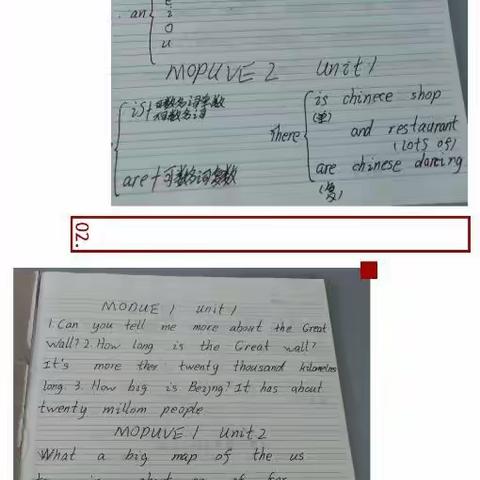 an
e
i
o
u
MOPUVE 2 Unit 1
is+可数名词单数
不可数名词
are+可数名词复数
There
is chinece shop
(单)
and restaurant
(lots of)
are chinese dancing
(复)
02.
MODUE 1 unit 1
1. Can you tell me more about the Great
wall? 2. How long is the Great wall?
It's more ther twenty thousand kilometres
long. 3. How big is Beijng? It has about
twenty millom people
MOPUVE 1 Unit 2
What a big map of the us